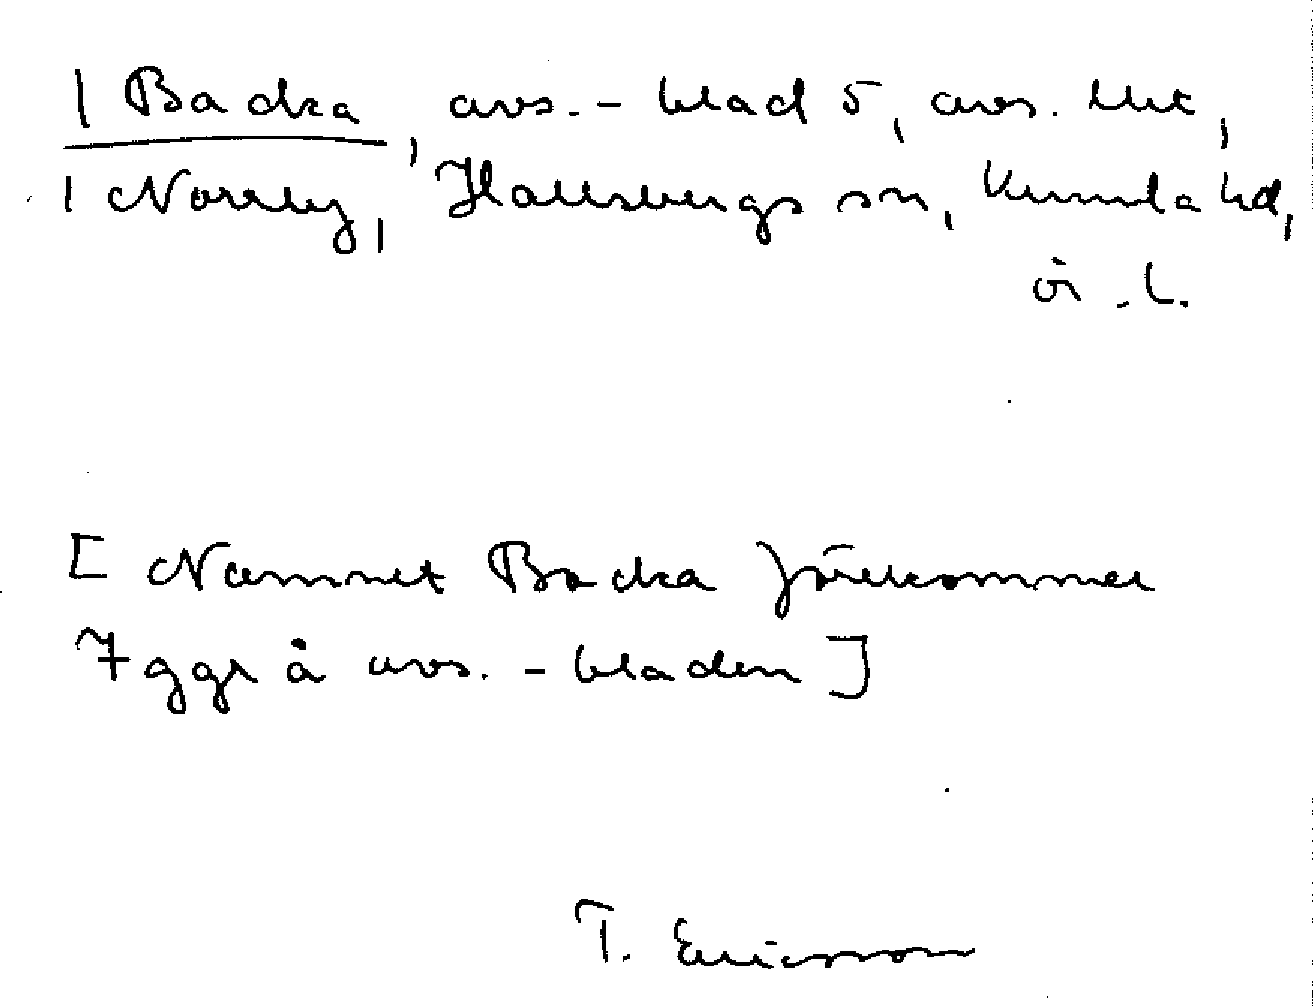 1 Backa, avs.-blad 5, avs. Ukt,
1 Norrby, Hallsbergs sn, Kumla hd,
ör. l.
[Namnet Backa förekommer
7 ggr å avs.-bladen]
T. Ericsson